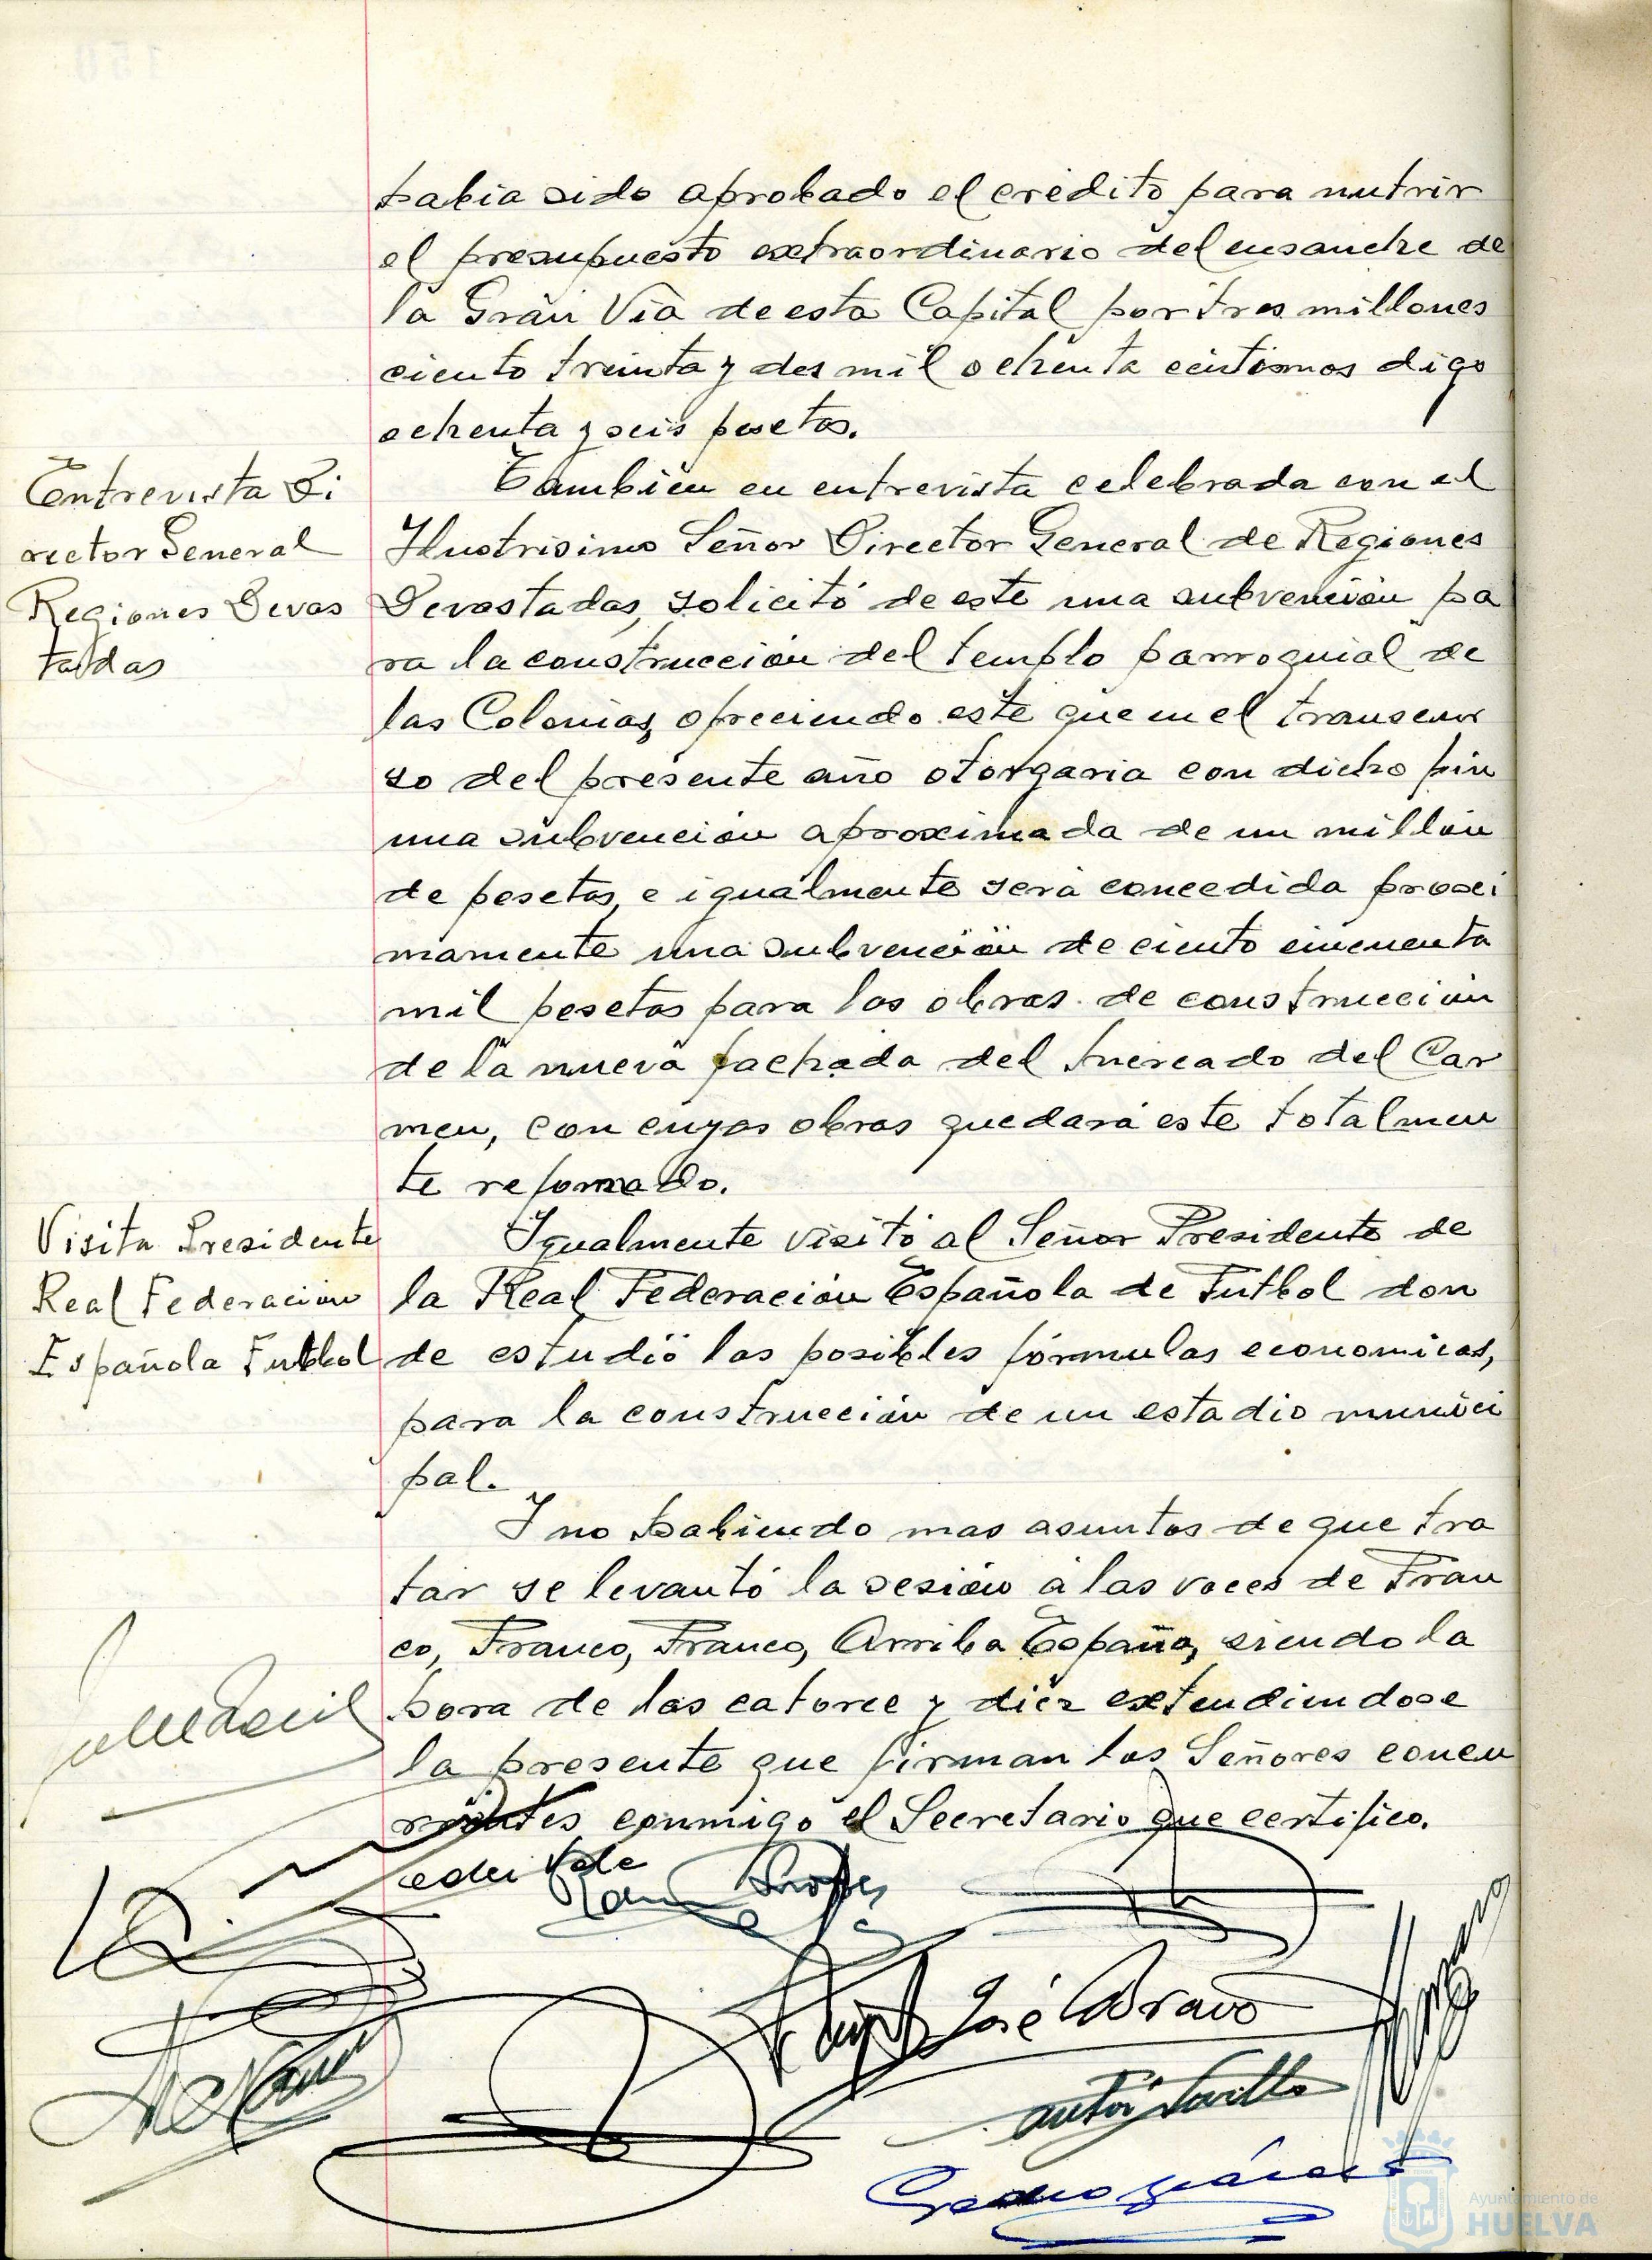 habia sido aprobado el credito para nutrir
el presupuesto extraordinario del ensanche de
la Gran Via de esta Capital por tres millones
ciento treinta y dos mil ochenta centimos digo
ochenta y seis pesetas.
Entrevista Di
rector General
Regiones Devas
tadas
Tambien en entrevista celebrada con el
Ilustrisimo Señor Director General de Regiones
Devastadas, solicitó de este una subvención pa
ra la construccion del templo parroquial de
las Colonias, ofreciendo este que en el transcur
so del presente año otorgaria con dicho fin
una subvencion aproximada de un millón
de pesetas, e igualmente será concedida proxi
mamente una subvención de ciento cincuenta
mil pesetas para las obras de construcción
de la nueva fachada del Mercado del Car
men, con cuyas obras quedará este totalmen
te reformado.
Visita Presidente
Real Federacion
Española Futbol
Igualmente visitó al Señor Presidente de
la Real Federación Española de Futbol don
de estudió las posibles fórmulas economicas,
para la construcción de un estadio munici
pal.
Y no habiendo mas asuntos de que tra
tar se levantó la sesión a las voces de Fran
co, Franco, Franco, Arriba España, siendo la
hora de las catorce y diez extendiendose
la presente que firman los Señores concu
rrentes conmigo el Secretario que certifico.
José Bravo
Ayuntamiento de
HUELVA
150